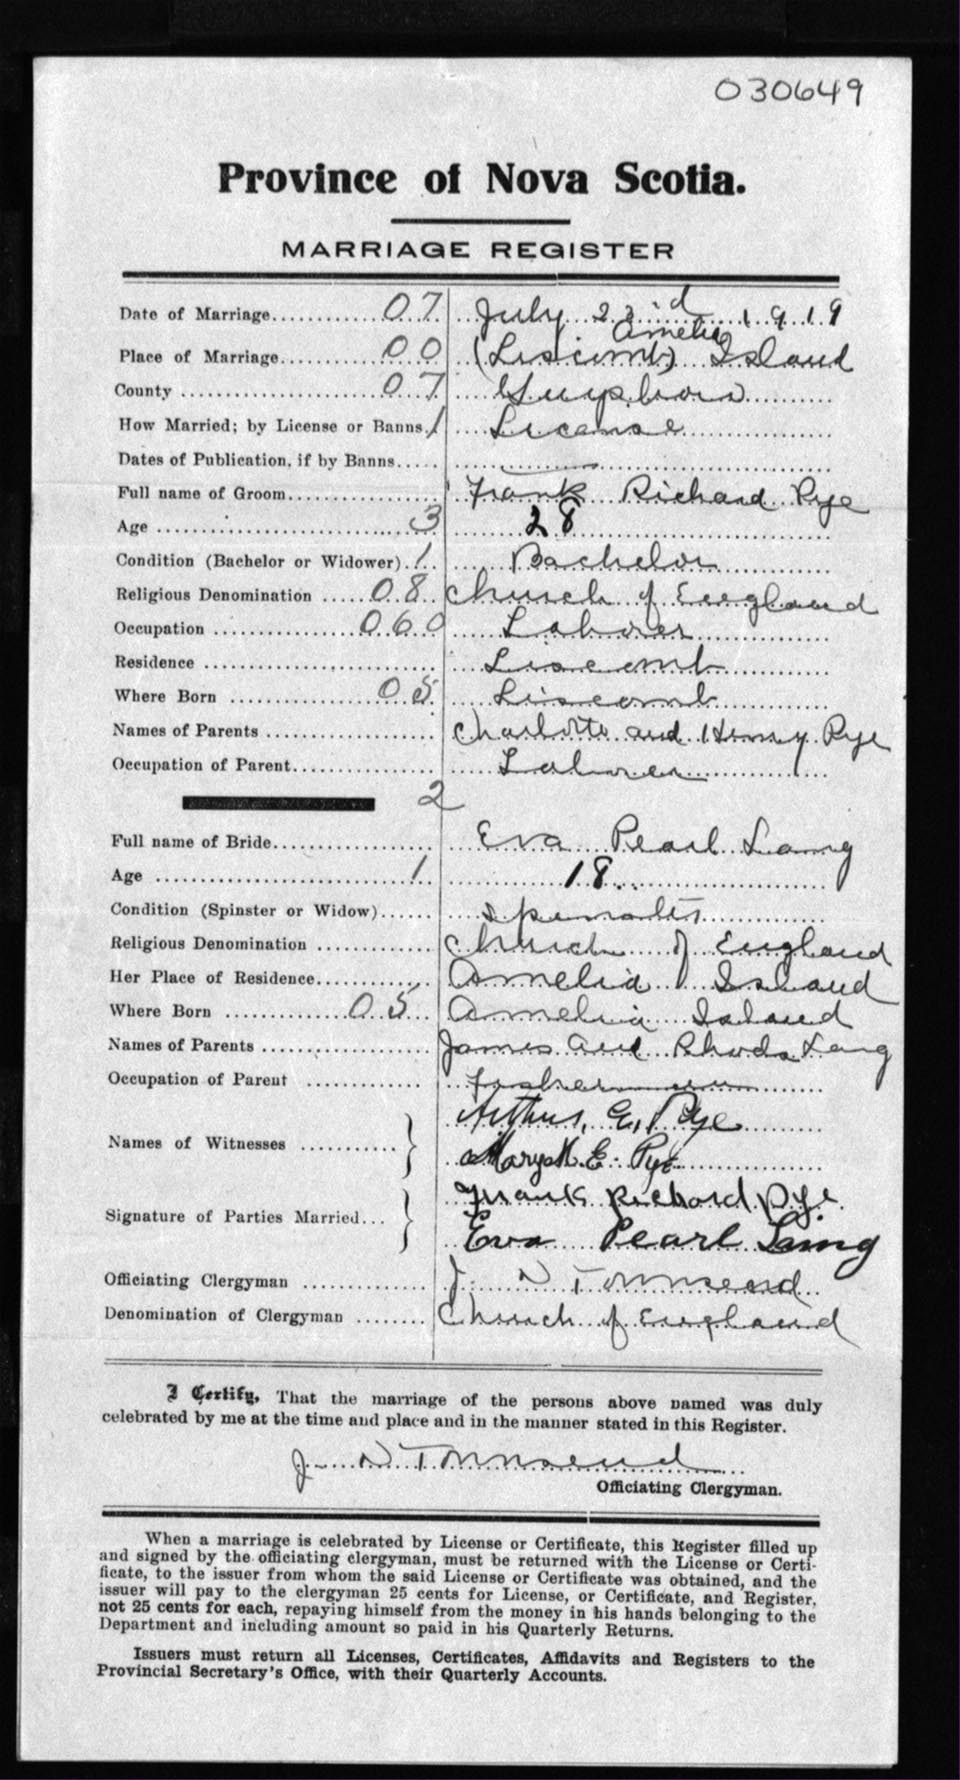 030649
Province of Nova Scotia.
MARRIAGE REGISTER
Date of Marriage 07 July 23rd 1919
Amelia
Place of Marriage 00 (Liscomb) Island
County 07 Guysboro
How Married; by License or Banns. 1 License
Dates of Publication, if by Banns
Full name of Groom Frank Richard Pye
Age 3 28
Condition (Bachelor or Widower) 1 Bachelor
Religious Denomination 08 Church of England
Occupation 060 Laborer
Residence Liscomb
Where Born 05 Liscomb
Names of Parents Charlotte and Henry Pye
Occupation of Parent Laborer
2
Full name of Bride Eva Pearl Lang
Age 1 18
Condition (Spinster or Widow)
Religious Denomination Church of England
Her Place of Residence Amelia Island
Where Born 05 Amelia Island
Names of Parents James and Rhoda Lang
Occupation of Parent Fisherman
Arthur, E, Pye
Names of Witnesses
Mary M. E. Pye
Frank Richard Pye
Signature of Parties Married
Eva Pearl Laing
Officiating Clergyman J. N Townsend
Denomination of Clergyman Church of England
I Certify, That the marriage of the persons above named was duly
celebrated by me at the time and place and in the manner stated in this Register.
J. N Townsend
Officiating Clergyman.
When a marriage is celebrated by License or Certificate, this Register filled up
and signed by the officiating clergyman, must be returned with the License or Certi-
ficate, to the issuer from whom the said License or Certificate was obtained, and the
issuer will pay to the clergyman 25 cents for License, or Certificate, and Register,
not 25 cents for each, repaying himself from the money in his hands belonging to the
Department and including amount so paid in his Quarterly Returns.
Issuers must return all Licenses, Certificates, Affidavits and Registers to the
Provincial Secretary's Office, with their Quarterly Accounts.